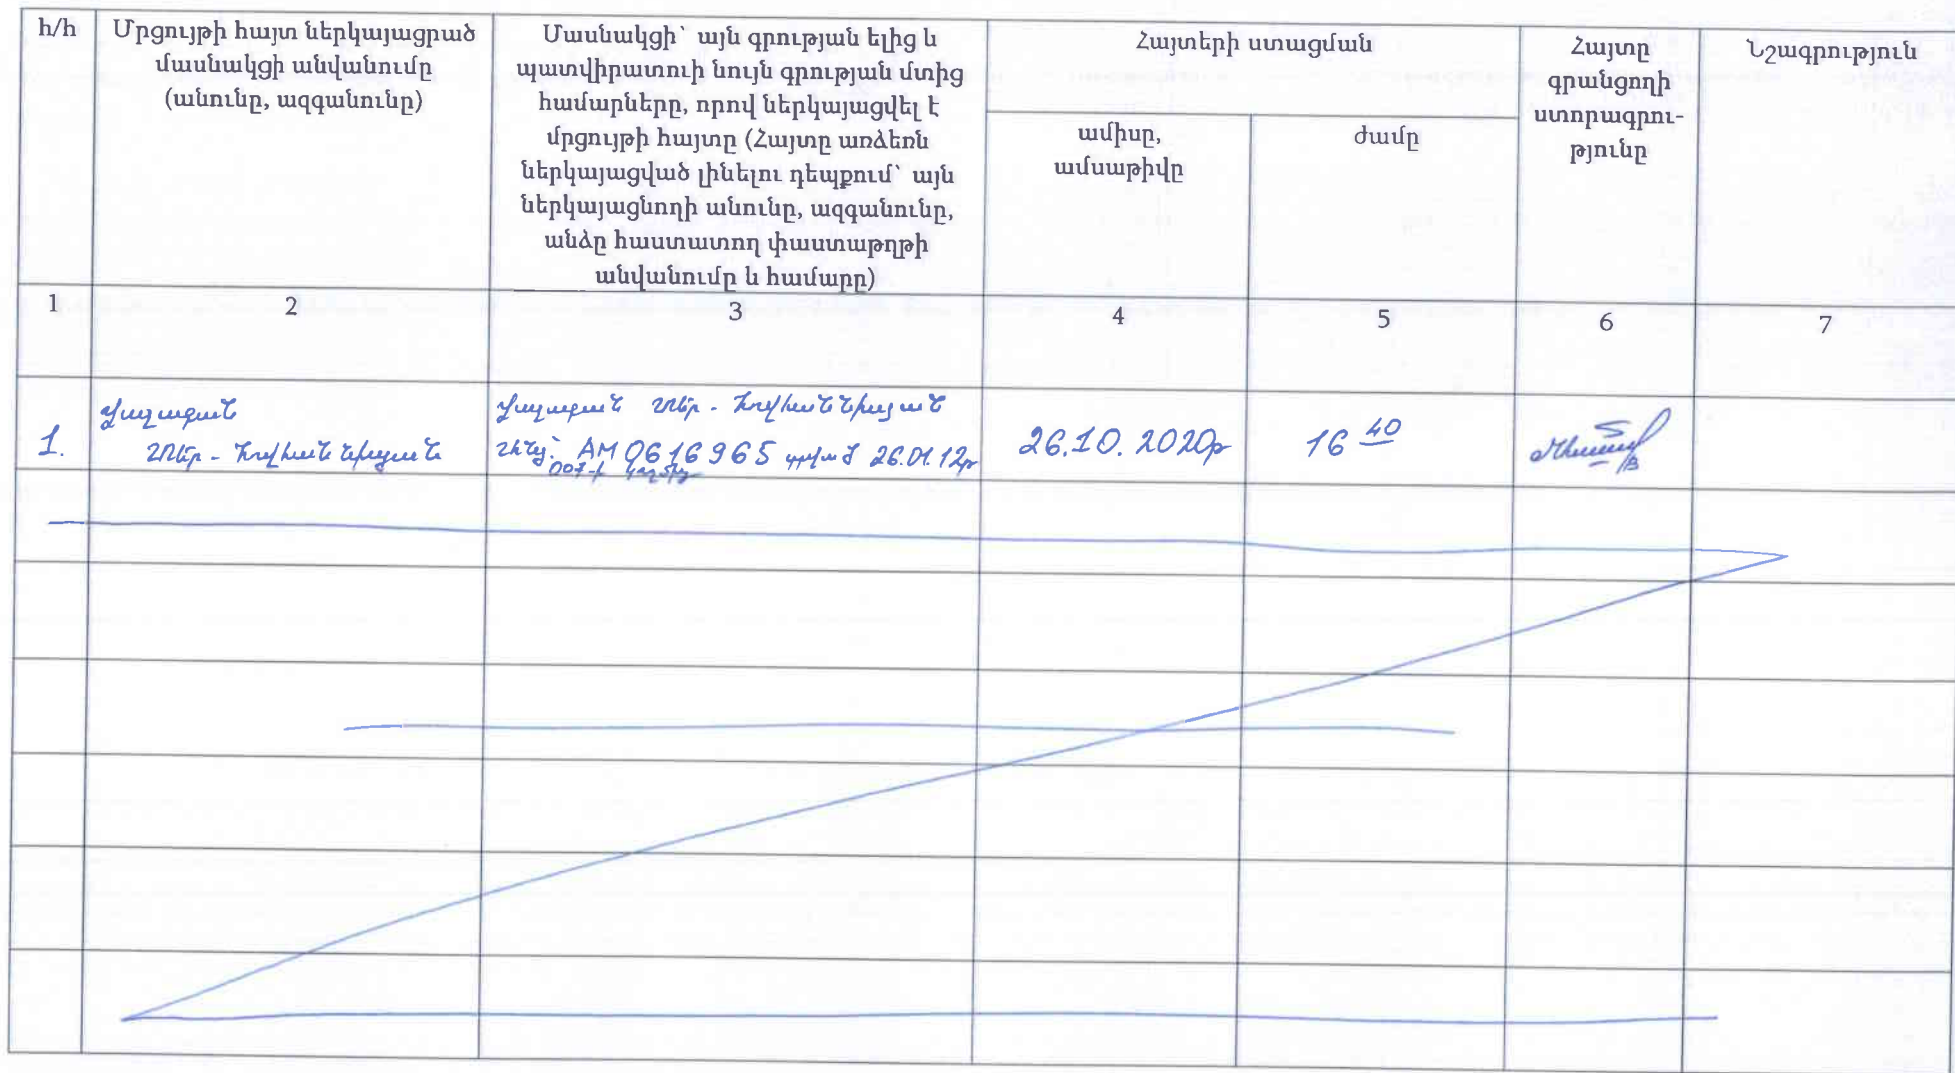 հ/հ
Մրցույթի հայտ ներկայացրած
մասնակցի անվանումը
(անունը, ազգանունը)
Մասնակցի՝ այն գրության ելից և
պատվիրատուի նույն գրության մտից
համարները, որով ներկայացվել է
մրցույթի հայտը (Հայտը առձեռն
ներկայացված լինելու դեպքում՝ այն
ներկայացնողի անունը, ազգանունը,
անձը հաստատող փաստաթղթի
անվանումը և համարը)
Հայտերի ստացման
ամիսը,
ամսաթիվը
ժամը
Հայտը
գրանցողի
ստորագրու-
թյունը
Նշագրություն
1 2 3 4 5 6 7
1.
Վաչագան
Տեր-Հովհաննիսյան
Վաչագան Տեր-Հովհաննիսյան
AM 0616965 տրված 26.01.12թ
007-ի կողմից
26.10.2020թ
16 40